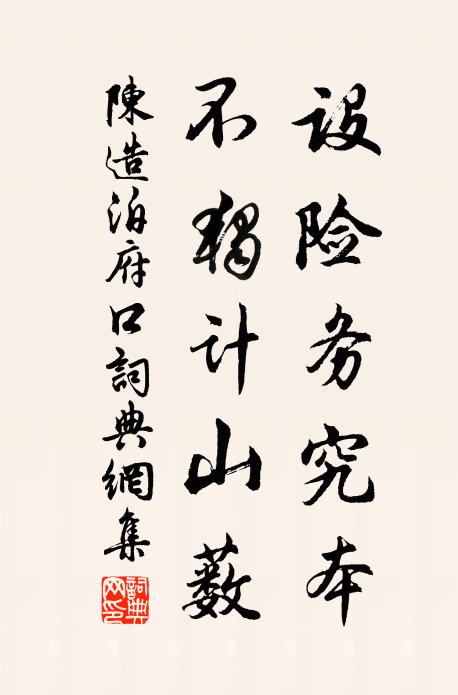 设险务究本
不独计山薮
陳造泊府口詞典網集
詞典網印